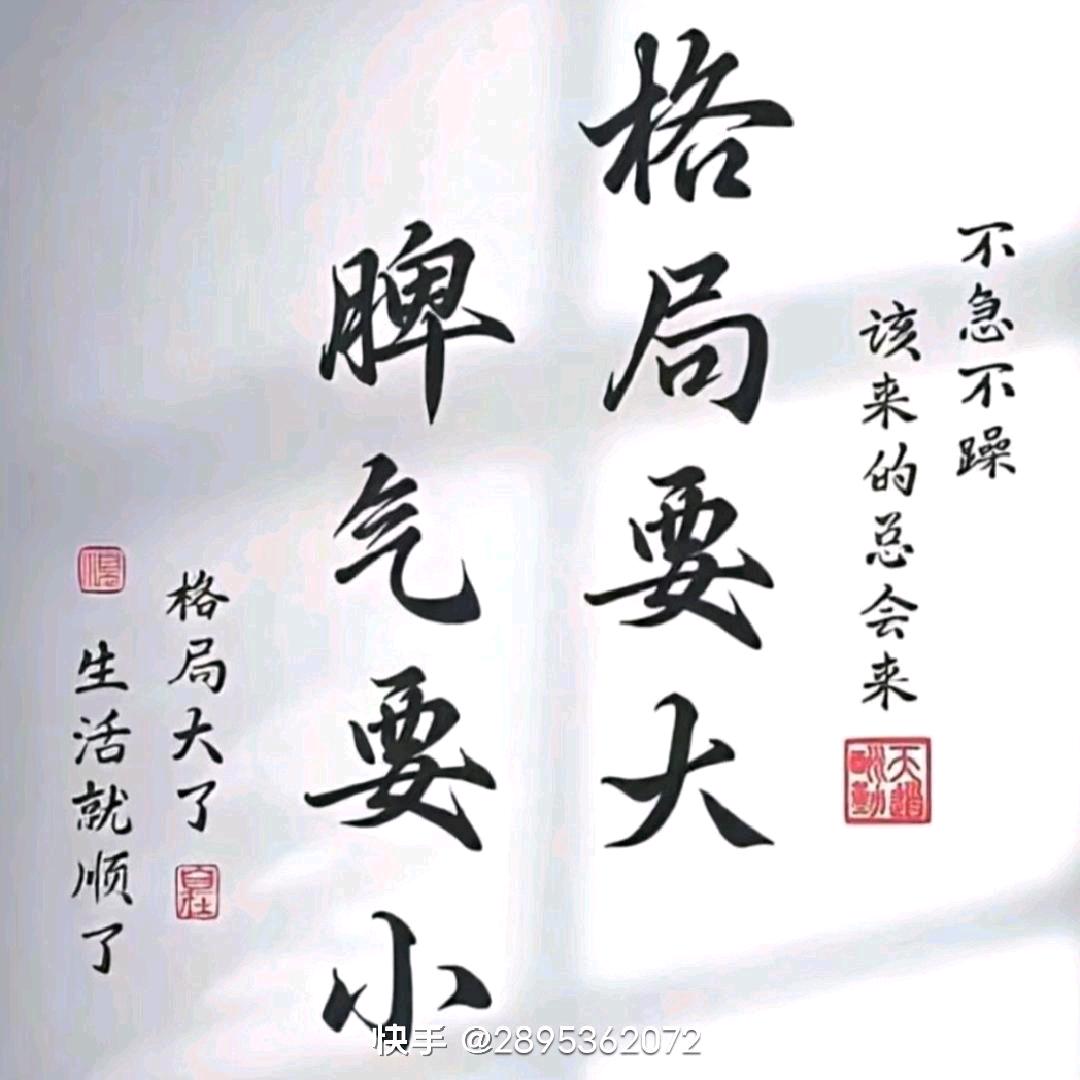 不急不躁
该来的总会来
天道酬勤
格局要大
脾气要小
格局大了
生活就顺了
快手 @2895362072